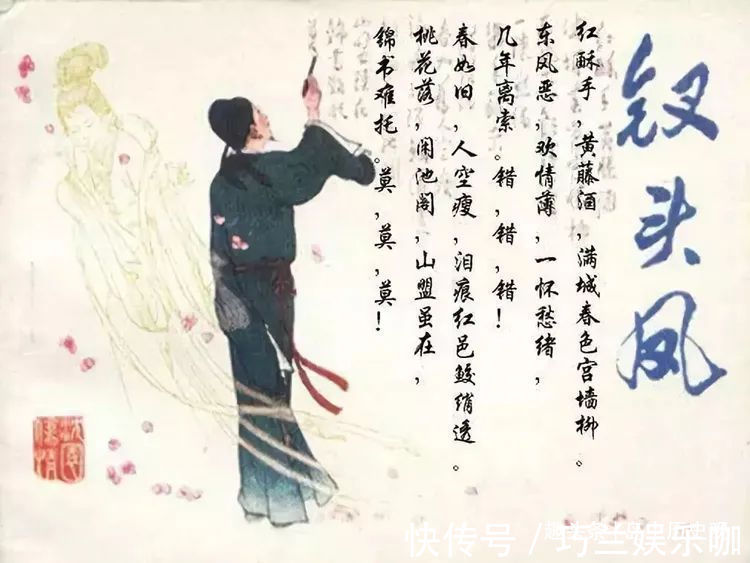 钗头凤
红酥手，黄藤酒，满城春色宫墙柳。
东风恶，欢情薄，一怀愁绪，
几年离索。错，错，错！
春如旧，人空瘦，泪痕红邑鲛绡透。
桃花落，闲池阁，山盟虽在，
锦书难托。莫，莫，莫！
快传号 / 巧兰娱乐咖